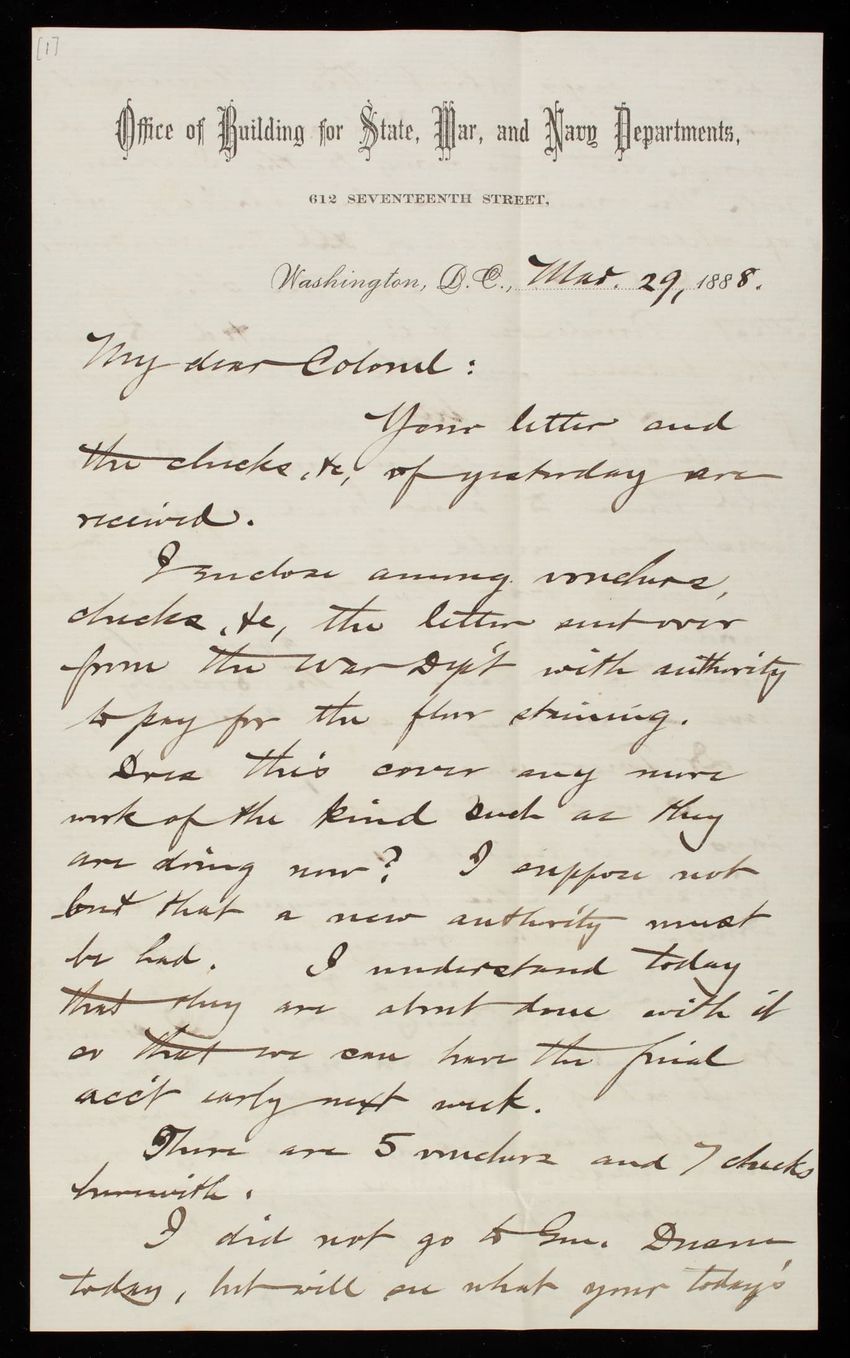 [1]
Office of Building for State, War, and Navy Departments,
612 SEVENTEENTH STREET,
Washington, D.C., Mar. 29, 1888.
My dear Colonel:
Your letter and
the checks, &c, of yesterday are
received.
I enclose among vouchers,
checks, &c, the letter sent over
from the War Dep't with authority
to pay for the floor staining.
Does this cover any more
work of the kind such as they
are doing now? I suppose not
but that a new authority must
be had. I understand today
that they are about done with it
so that we can have the final
acc't early next week.
There are 5 vouchers and 7 checks
herewith.
I did not go to Gen. Duane
today, but will see what your today's